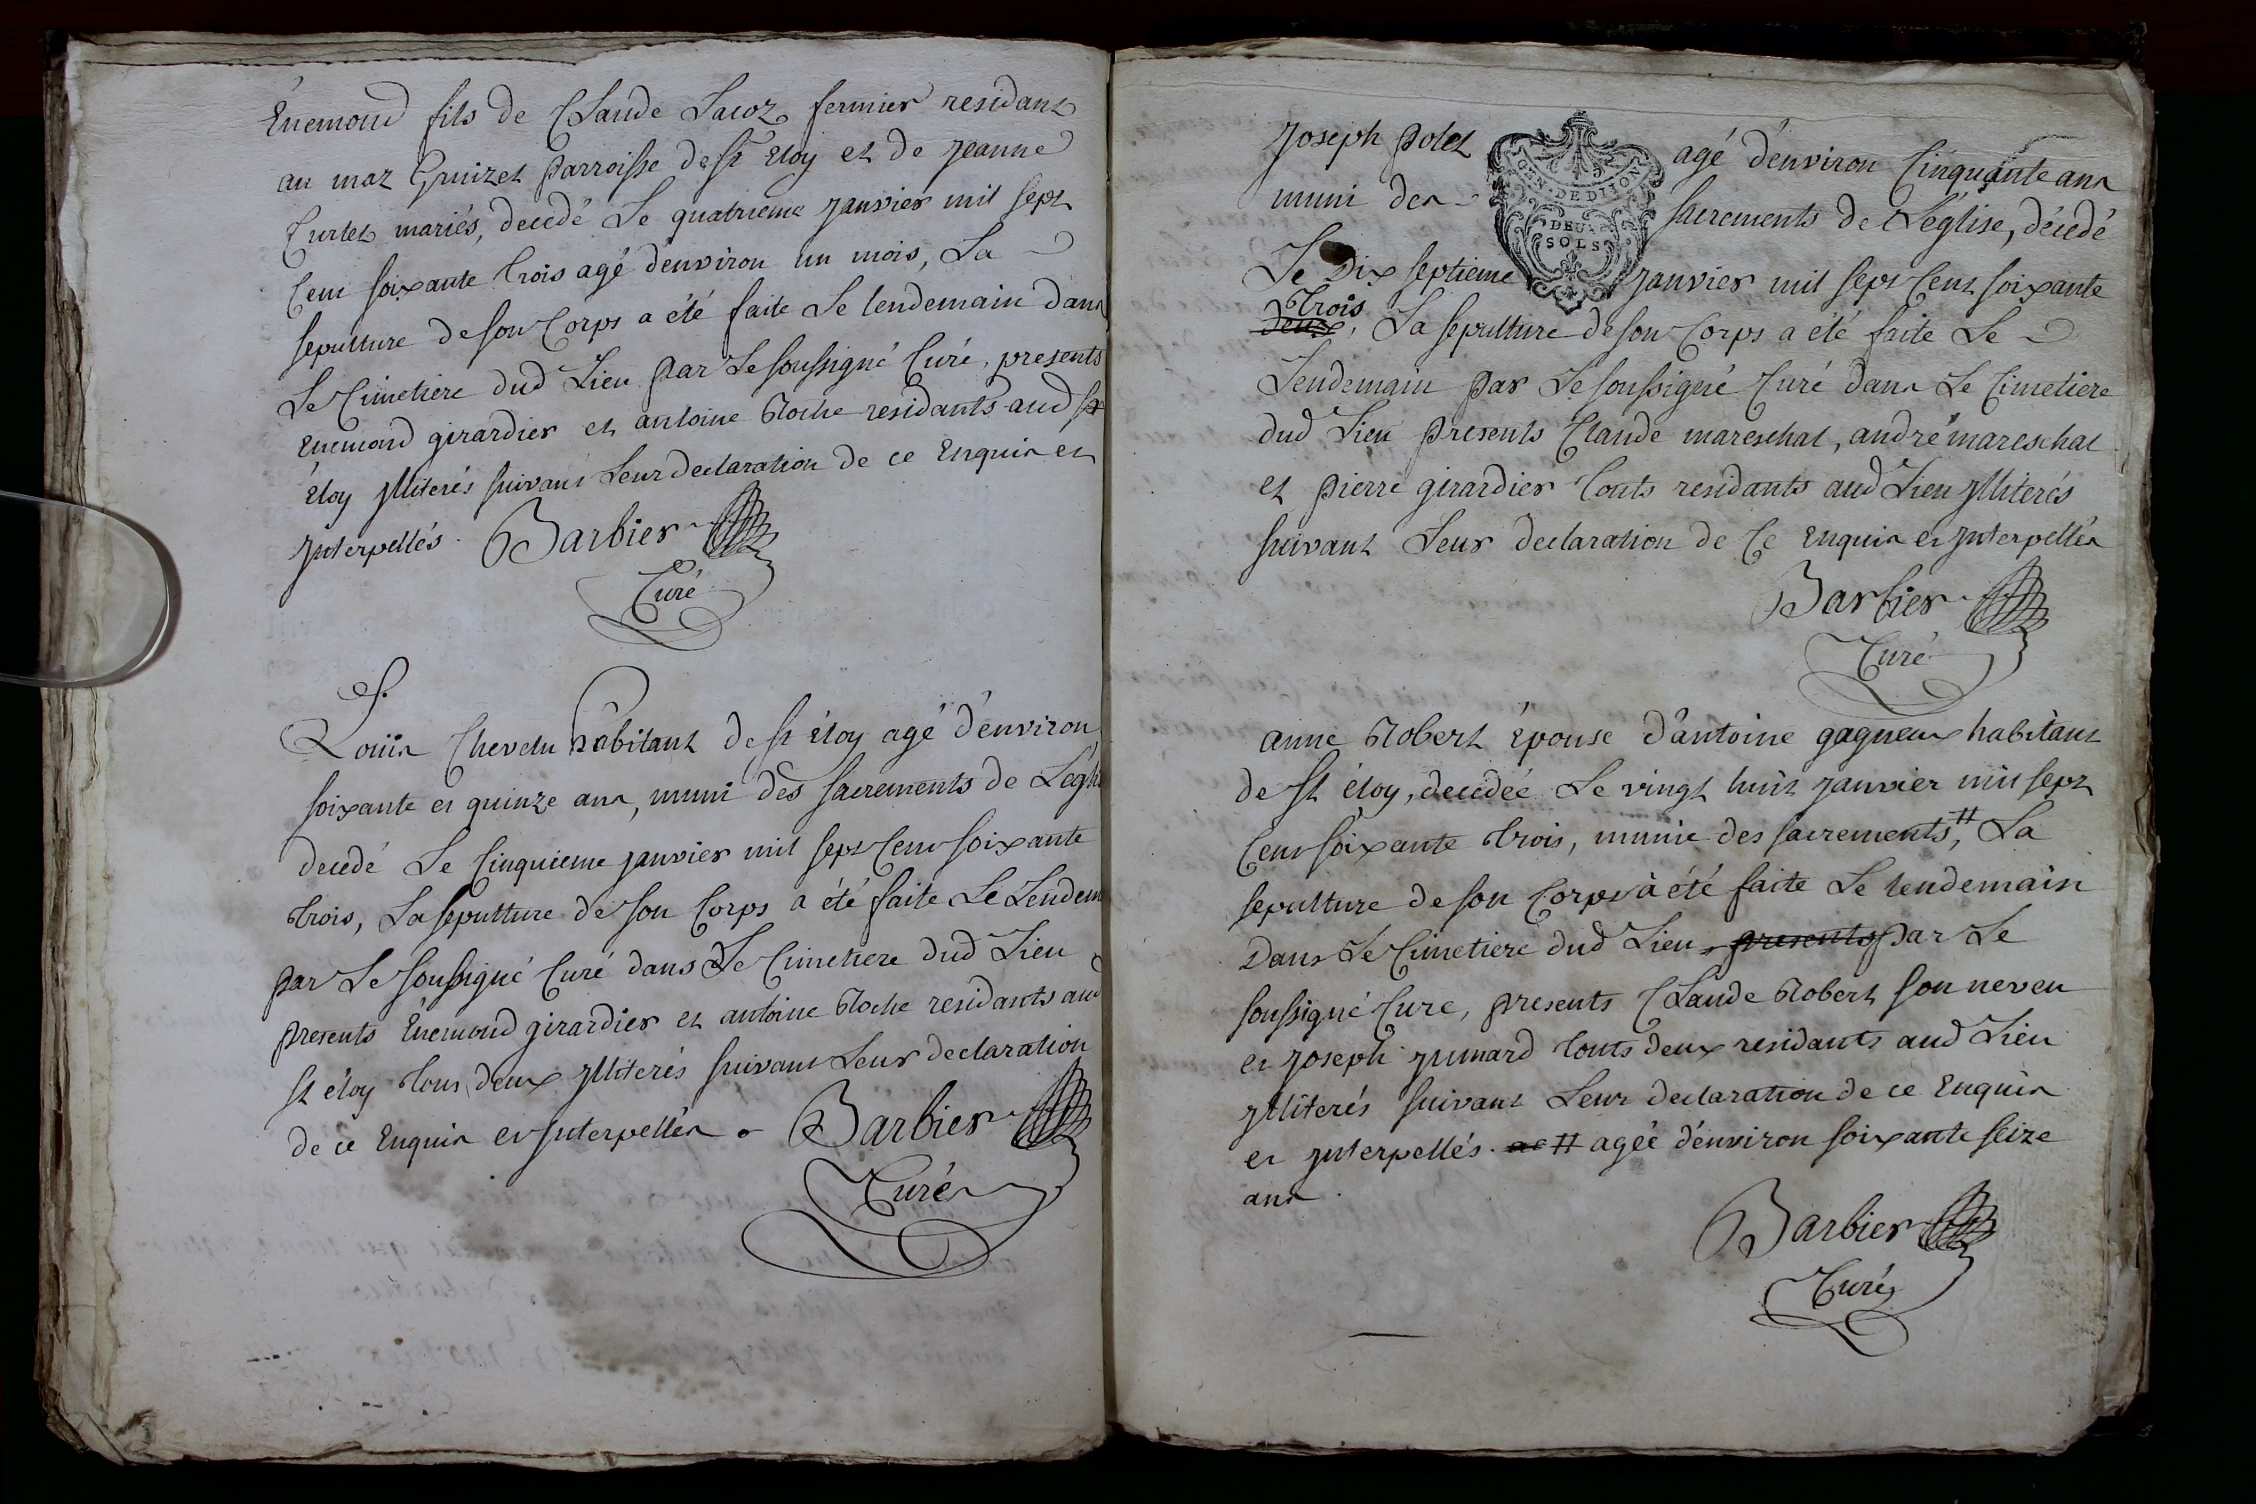 Enemond fils de Claude Lacoz fermier residant
au maz Gruizet parroisse de st Eloy et de jeanne
Curtet mariés, decedé Le quatrieme janvier mil sept
Cent soixante trois agé d'environ un mois, La
sepulture de son Corps a été faite Le lendemain dans
Le Cimetiere dud Lieu par Le soussigné Curé, presents
Enemond girardier et antoine Roche residants aud st
Eloy jlliterés suivant Leur declaration de ce Enquis et
jnterpellés. Barbier
Curé
Louis Chevelu habitant de st éloy agé d'environ
soixante et quinze ans, muni des sacrements de L'égli
decedé Le Cinquieme janvier mil sept Cent soixante
trois, La sepulture de son Corps a été faite Le Lendem
par Le soussigné Curé dans Le Cimetiere dud Lieu
presents Enemond girardier et antoine Roche residants aud
st éloy tous deux jlliterés suivant Leur declaration
de ce Enquis et jnterpellés. Barbier
Curé
Joseph polet agé d'environ Cinquante ans
GEN. DE DIJON
muni des sacrements de L'église, décedé
DEUX
SOLS
Le Dix septieme janvier mil sept Cent soixante
trois
deux, La sepulture de son Corps a été faite Le
Lendemain par Le soussigné Curé dans Le Cimetiere
dud Lieu presents Claude mareschal, andré mareschal
et pierre girardier touts residants aud Lieu jlliterés
suivant Leur declaration de Ce Enquis et jnterpellés
Barbier
Curé
anne Robert épouse d'antoine gagneux habitant
de st éloy, decedée Le vingt huit janvier mil sept
Cent soixante trois, munie des sacrements,# La
sepulture de son Corps a été faite Le lendemain
Dans Le Cimetiere dud Lieu, presents par Le
soussigné Curé, presents Claude Robert son neveu
et joseph jumard touts deux residants aud Lieu
jlliterés suivant Leur declaration de ce Enquis
et jnterpellés. ae # agée d'environ soixante seize
ans.
Barbier
Curé